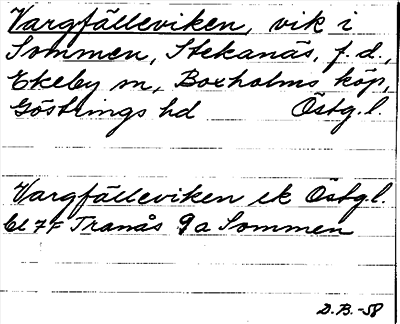 Vargfälleviken, vik i
Sommen, Stekanäs, f.d.,
Ekeby sn, Boxholms köp,
Göstrings hd Östg.l.
Vargfälleviken ek Östg.l.
bl 7F Tranås 9a Sommen
D.B.-58